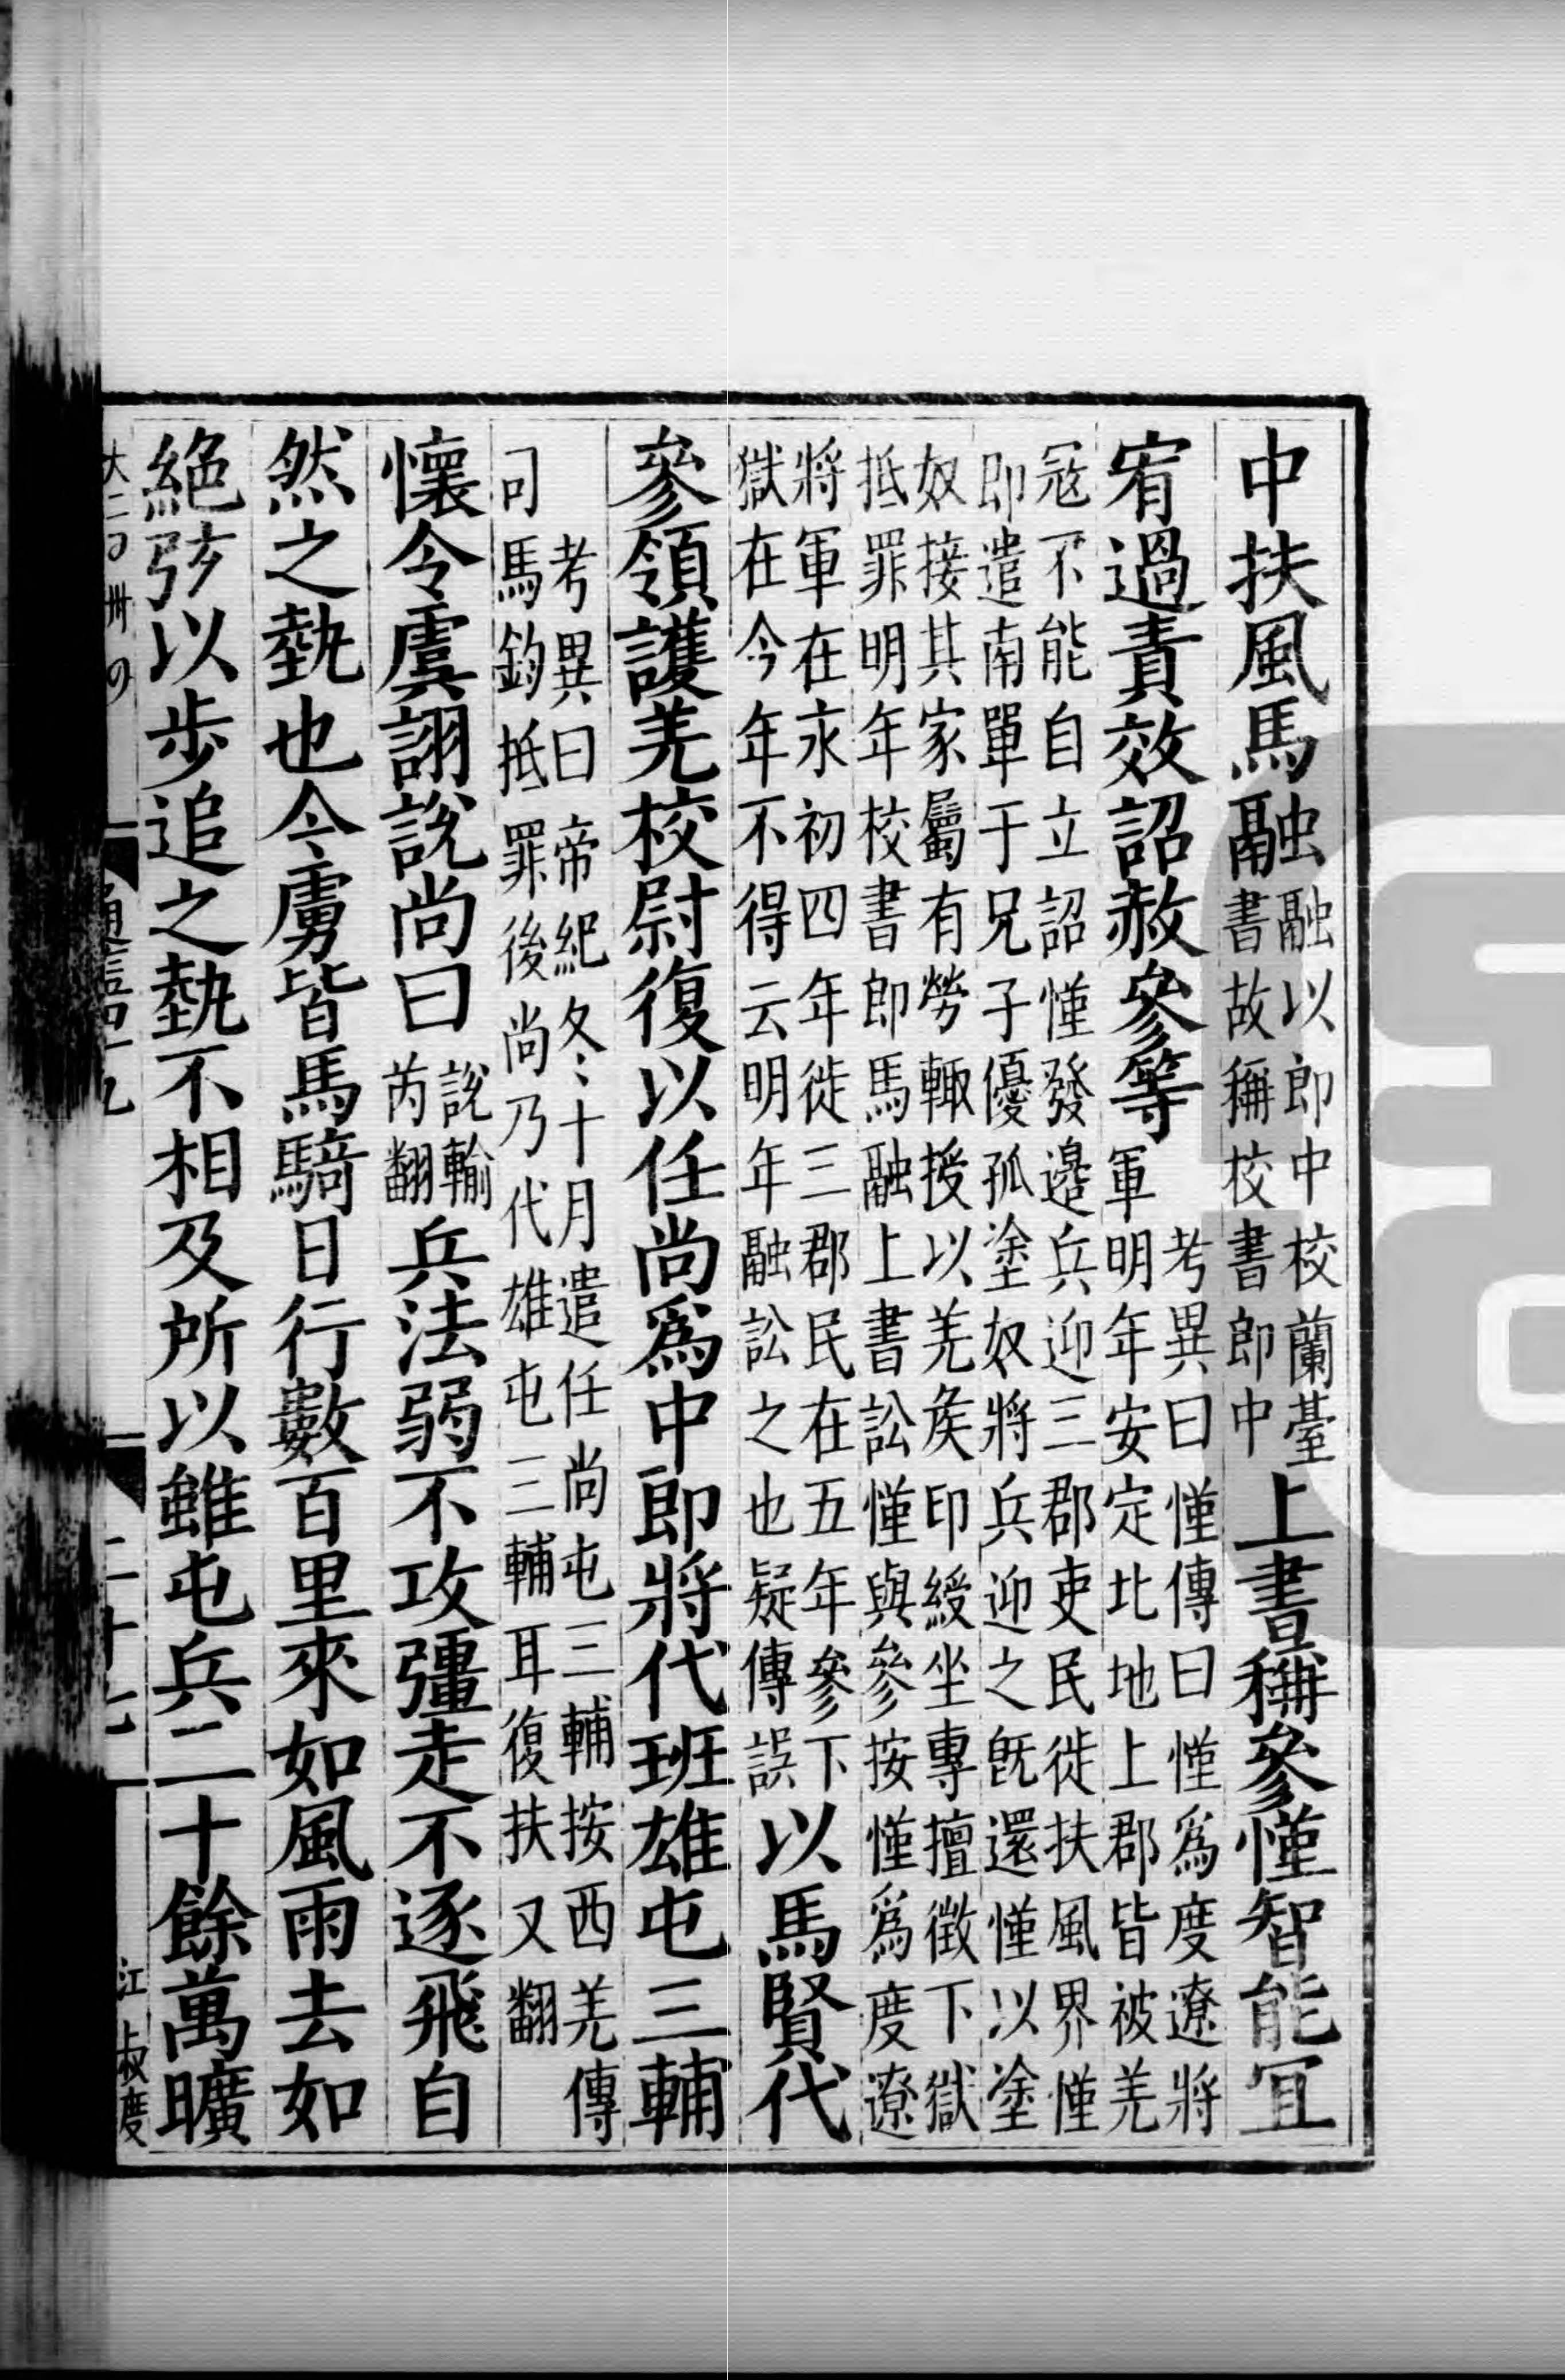 中扶風馬融融以郎中校蘭臺書故稱校書郎中上書稱參懂智能宜
宥過責效詔赦參等考異曰懂傳曰懂爲度遼將軍明年安定北地上郡皆被羌
寇不能自立詔懂發邊兵迎三郡吏民徙扶風界懂
即遣南單于兄子優孤塗奴將兵迎之旣還懂以塗
奴接其家屬有勞輙授以羌矦印綬坐專擅徵下獄
抵罪明年校書郎馬融上書訟懂與參按懂爲度遼
將軍在永初四年徙三郡民在五年參下
獄在今年不得云明年融訟之也疑傳誤以馬賢代
參領護羌校尉復以任尚爲中郎將代班雄屯三輔
考異曰帝紀冬十月遣任尚屯三輔按西羌傳
司馬鈞抵罪後尚乃代雄屯三輔耳復扶又翻
懷令虞詡說尚曰說輸芮翻兵法弱不攻彊走不逐飛自
然之埶也今虜皆馬騎日行數百里來如風雨去如
絕弦以步追之埶不相及所以雖屯兵二十餘萬曠
二十七